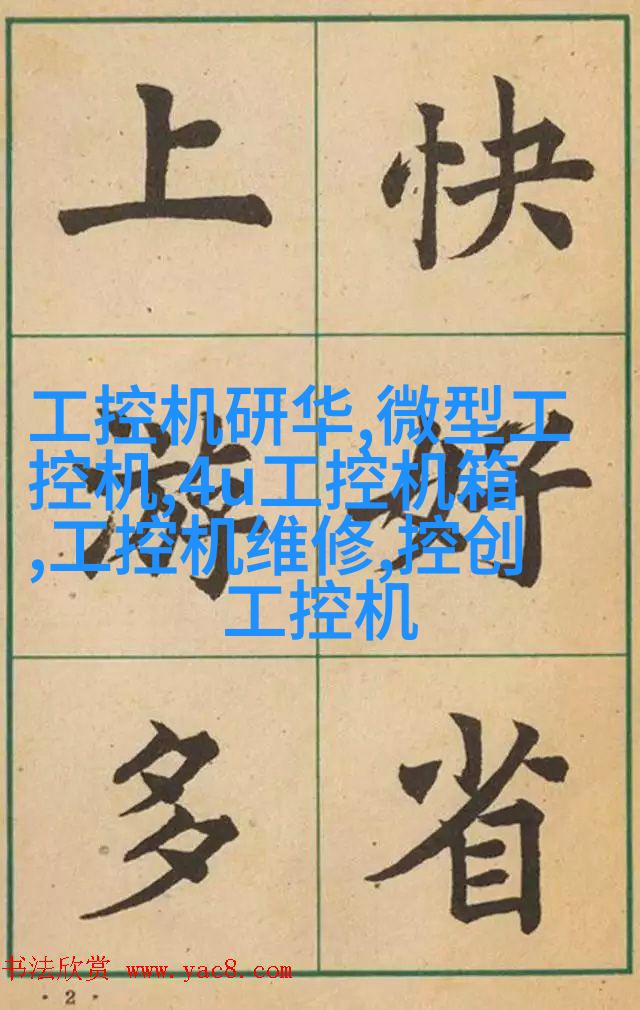 上 快
工控机研华,微型工
控机,4u工控机箱
,工控机维修,控创
工控机
游 好
多 省
书法欣赏 www.yac8.com
·2·